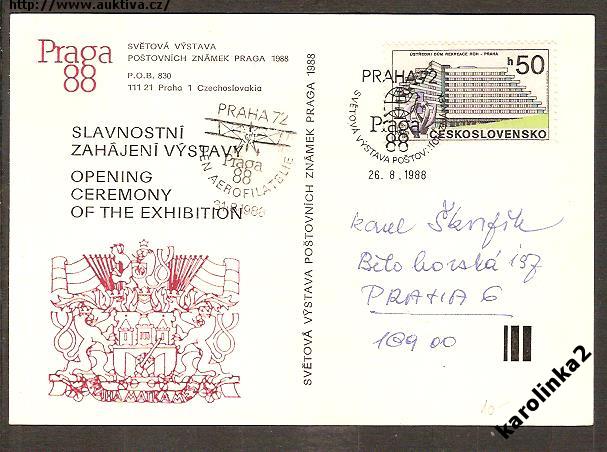 http://www.auktiva.cz/
Praga
88
SVĚTOVÁ VÝSTAVA
POŠTOVNÍCH ZNÁMEK PRAGA 1988
P.O.B. 830
111 21 Praha 1 Czechoslovakia
SLAVNOSTNÍ
ZAHÁJENÍ VÝSTAVY
OPENING
CEREMONY
OF THE EXHIBITION
PRAHA 72
Praga
88
DEN AEROFILATELIE
SVĚTOVÁ VÝSTAVA POŠTOVNÍCH ZNÁMEK PRAGA 1988
ÚSTŘEDNÍ DŮM REKREACE ROH - PRAHA
h 50
ČESKOSLOVENSKO
PRAHA 72
Praga
88
SVĚTOVÁ VÝSTAVA POŠTOV.
26.8.1988
Karel
Bělohorská 157
PRAHA 6
169 00
karolinka2